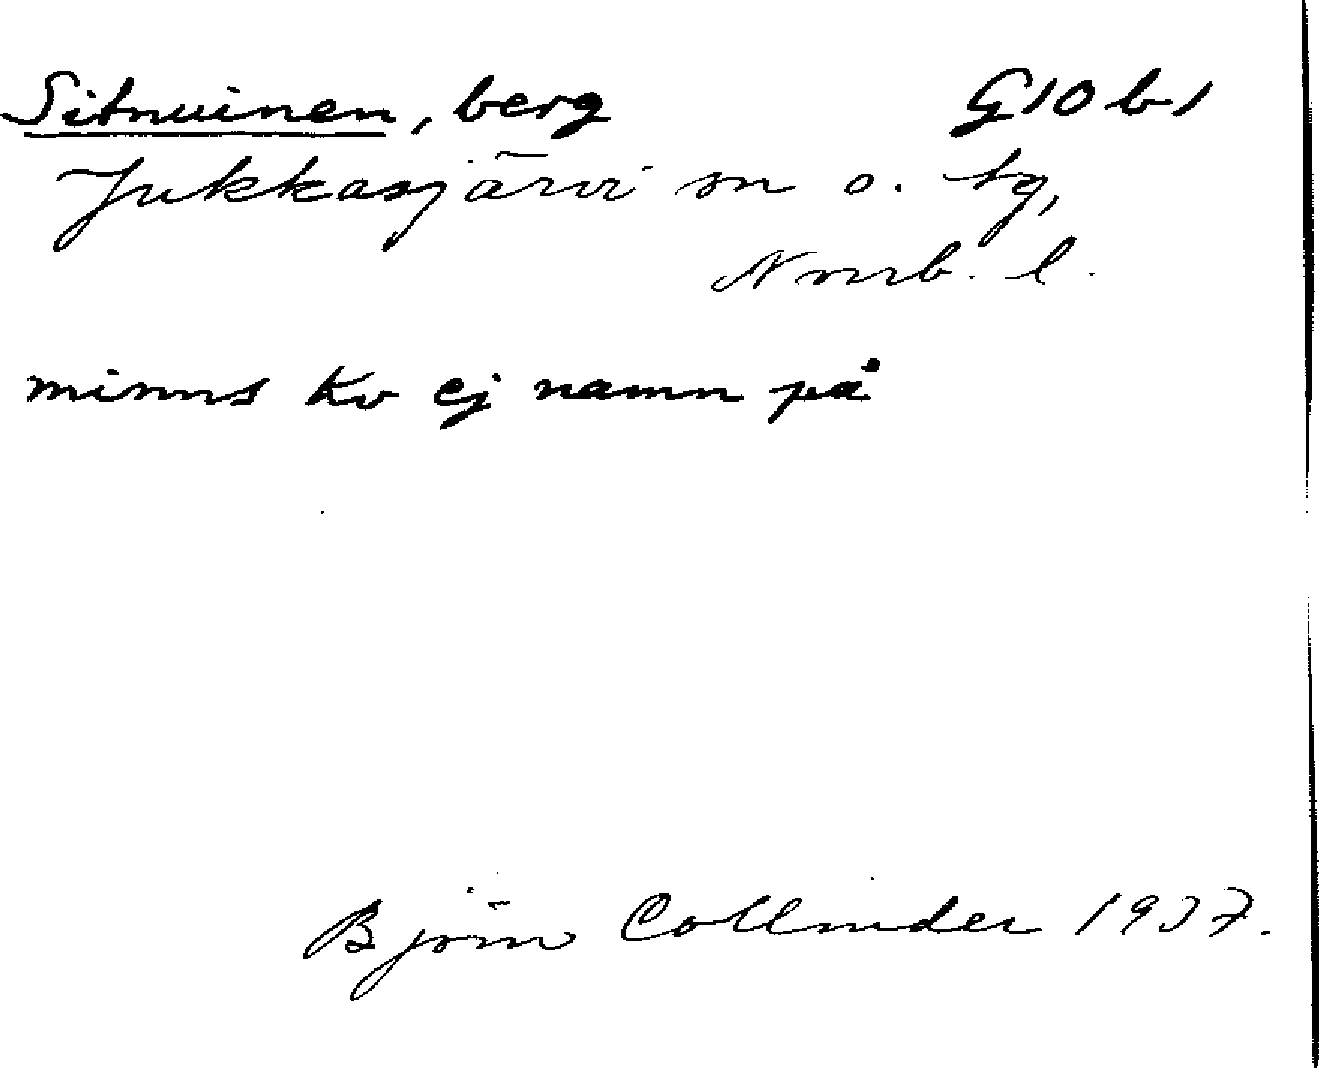 Sitnuinen, berg G10 b1
Jukkasjärvi sn o. tg,
Nrrb. l.
minns Kv ej namn på
Björn Collinder 1937.